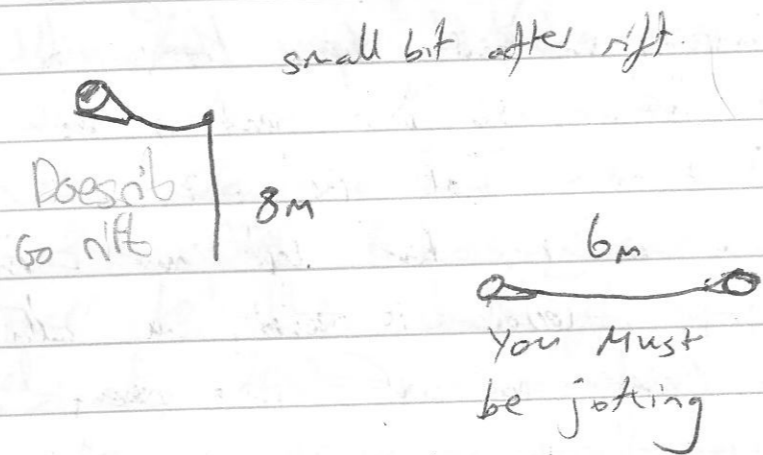 small bit after rift.
Doesn't
Go rift
8m
6m
You Must
be jotting